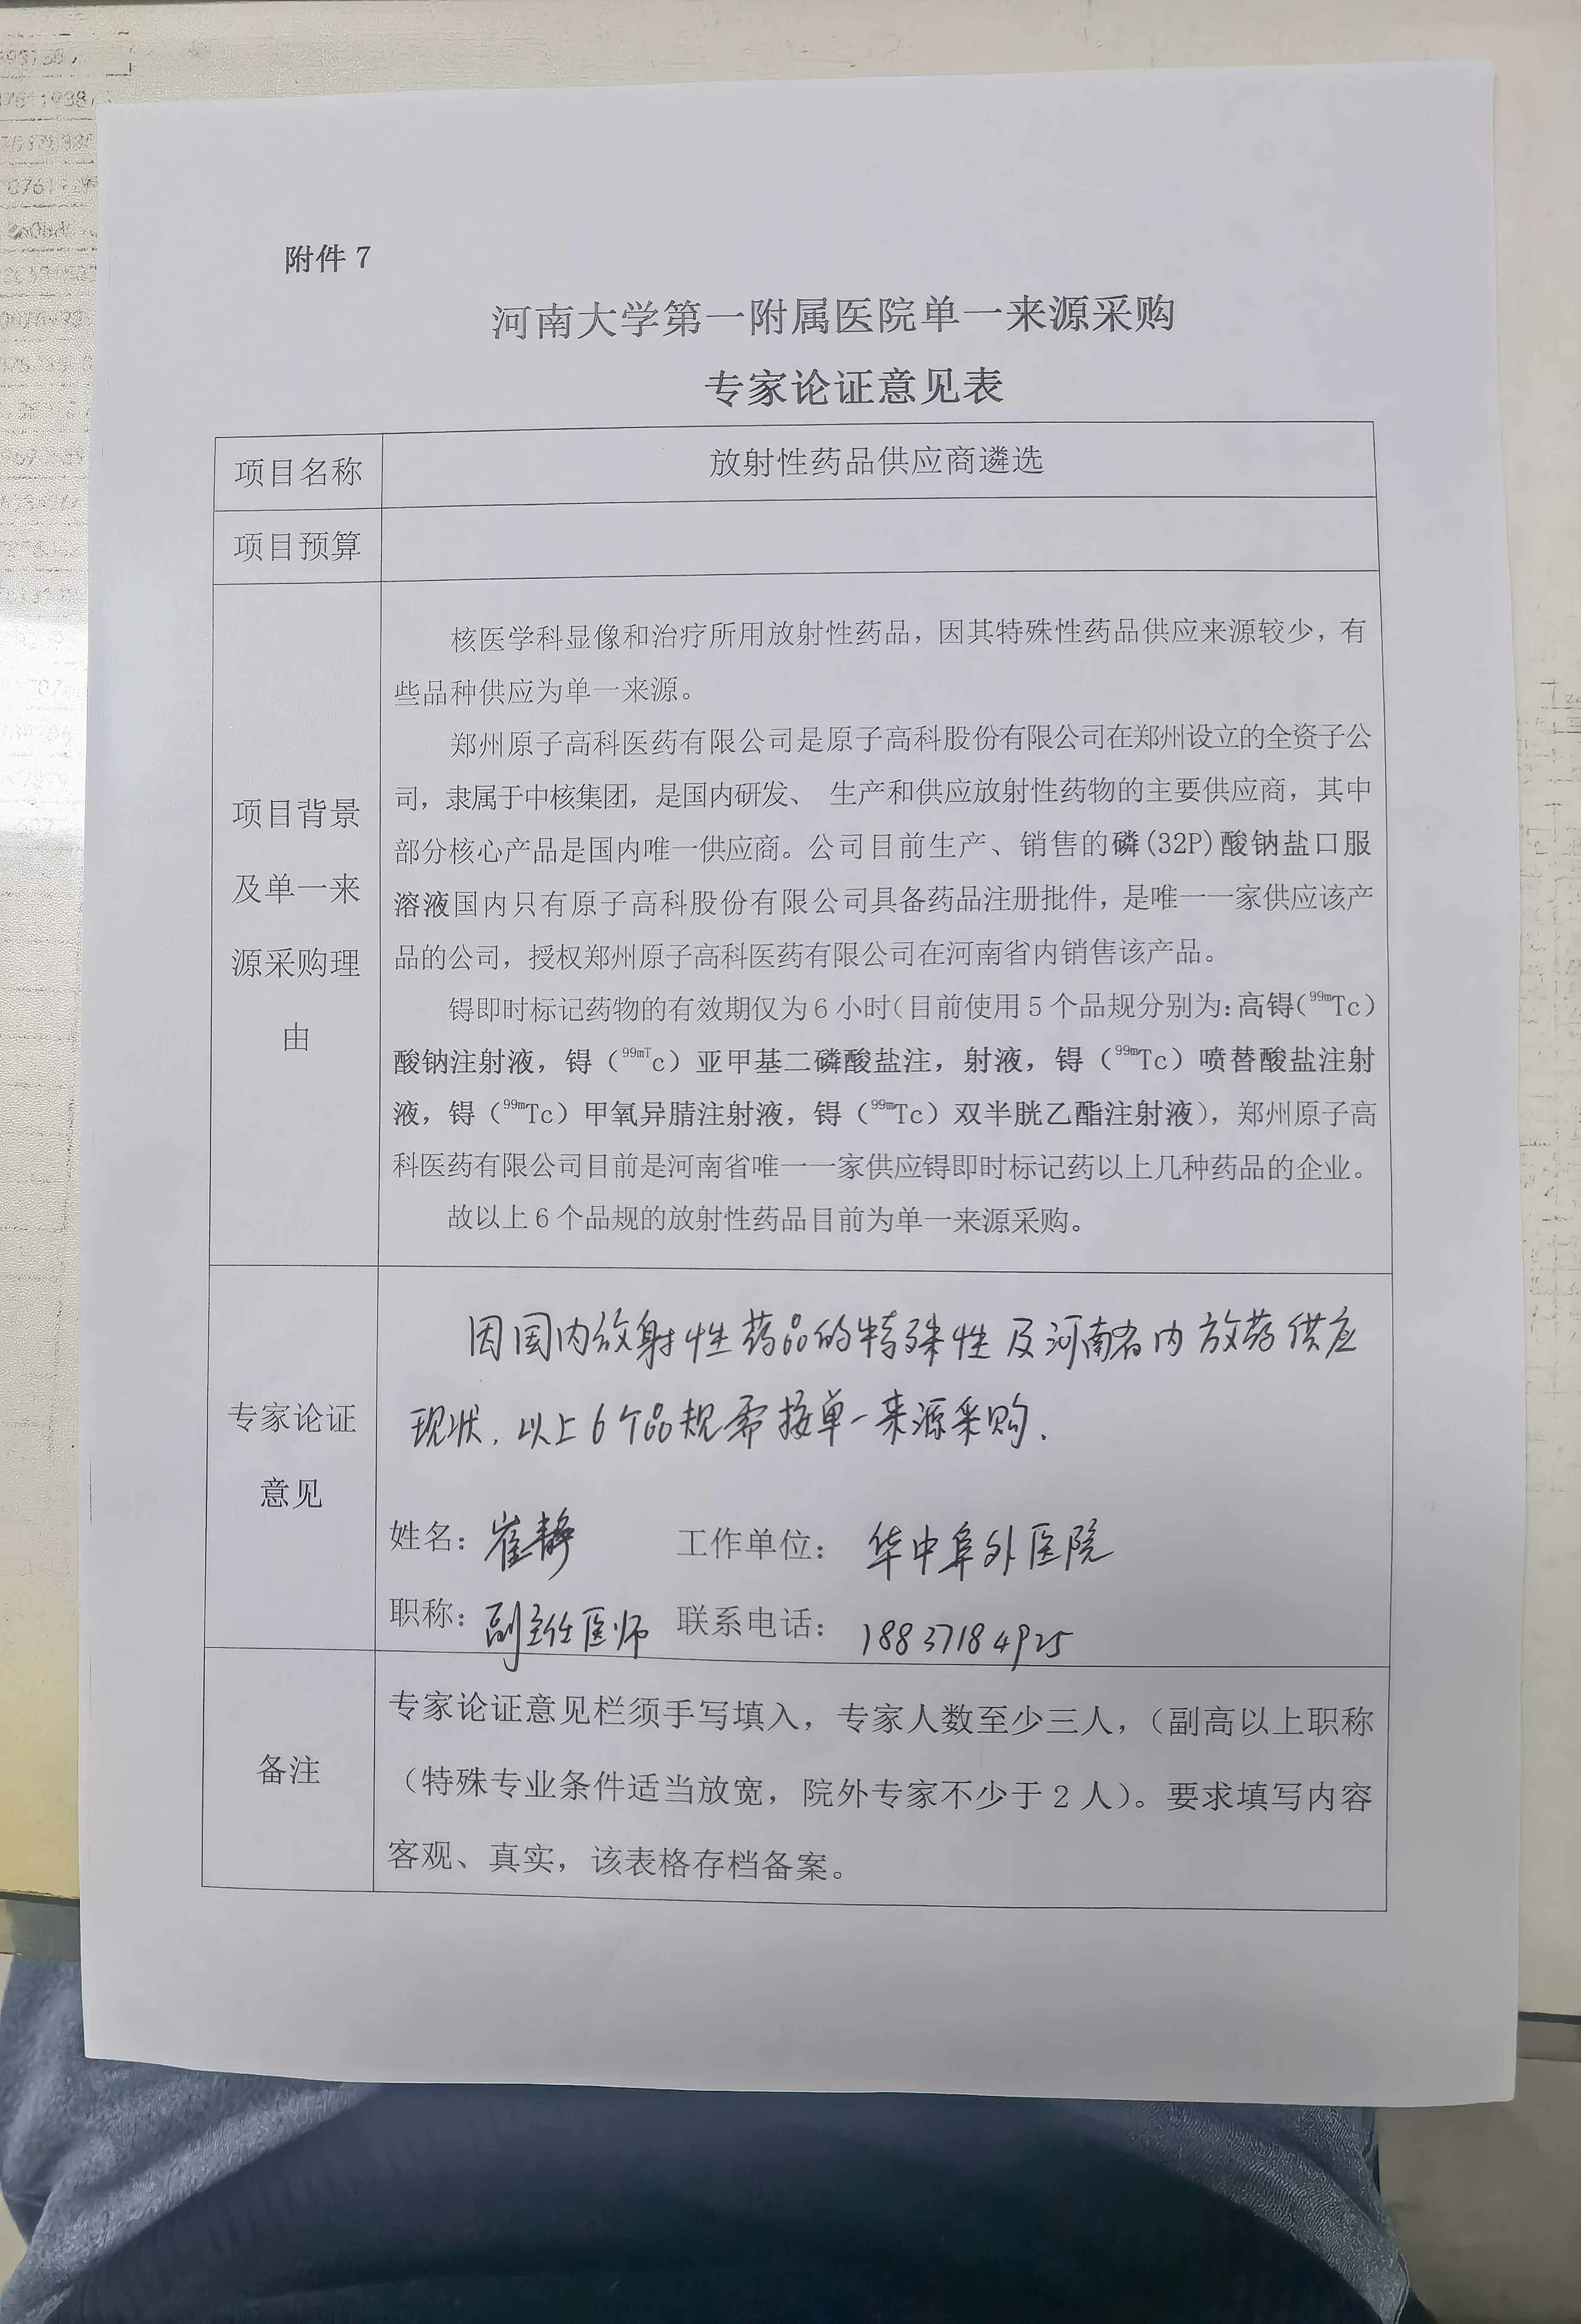 附件 7
河南大学第一附属医院单一来源采购
专家论证意见表
项目名称
放射性药品供应商遴选
项目预算
项目背景
及单一来
源采购理
由
核医学科显像和治疗所用放射性药品，因其特殊性药品供应来源较少，有
些品种供应为单一来源。
郑州原子高科医药有限公司是原子高科股份有限公司在郑州设立的全资子公
司，隶属于中核集团，是国内研发、 生产和供应放射性药物的主要供应商，其中
部分核心产品是国内唯一供应商。公司目前生产、销售的磷(32P)酸钠盐口服
溶液国内只有原子高科股份有限公司具备药品注册批件，是唯一一家供应该产
品的公司，授权郑州原子高科医药有限公司在河南省内销售该产品。
锝即时标记药物的有效期仅为 6 小时（目前使用 5 个品规分别为：高锝(⁹⁹ᵐTc)
酸钠注射液，锝（⁹⁹ᵐᵀc）亚甲基二磷酸盐注，射液，锝（⁹⁹ᵐTc）喷替酸盐注射
液，锝（⁹⁹ᵐTc）甲氧异腈注射液，锝（⁹⁹ᵐTc）双半胱乙酯注射液），郑州原子高
科医药有限公司目前是河南省唯一一家供应锝即时标记药以上几种药品的企业。
故以上 6 个品规的放射性药品目前为单一来源采购。
专家论证
意见
因国内放射性药品的特殊性及河南省内放药供应
现状，以上6个品规需按单一来源采购.
姓名：崔静 工作单位：华中阜外医院
职称：副主任医师 联系电话：18837184925
备注
专家论证意见栏须手写填入，专家人数至少三人，（副高以上职称
（特殊专业条件适当放宽，院外专家不少于 2 人）。要求填写内容
客观、真实，该表格存档备案。